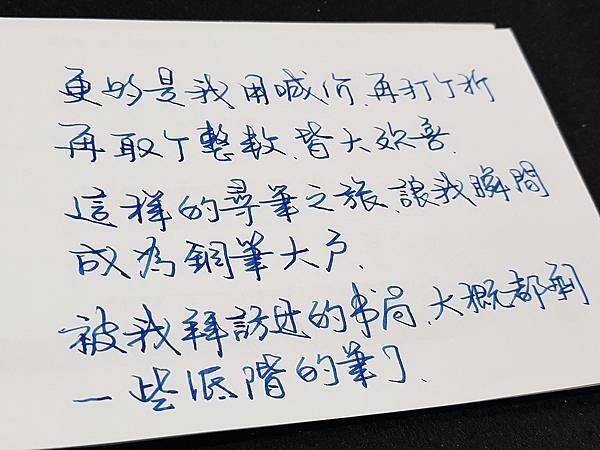 更的是我用喊价、再打个折
再取个整数、皆大欢喜.
這样的尋筆之旅、讓我瞬間
成為鋼筆大户.
被我拜訪过的书局、大概都剩
一些低階的筆了.